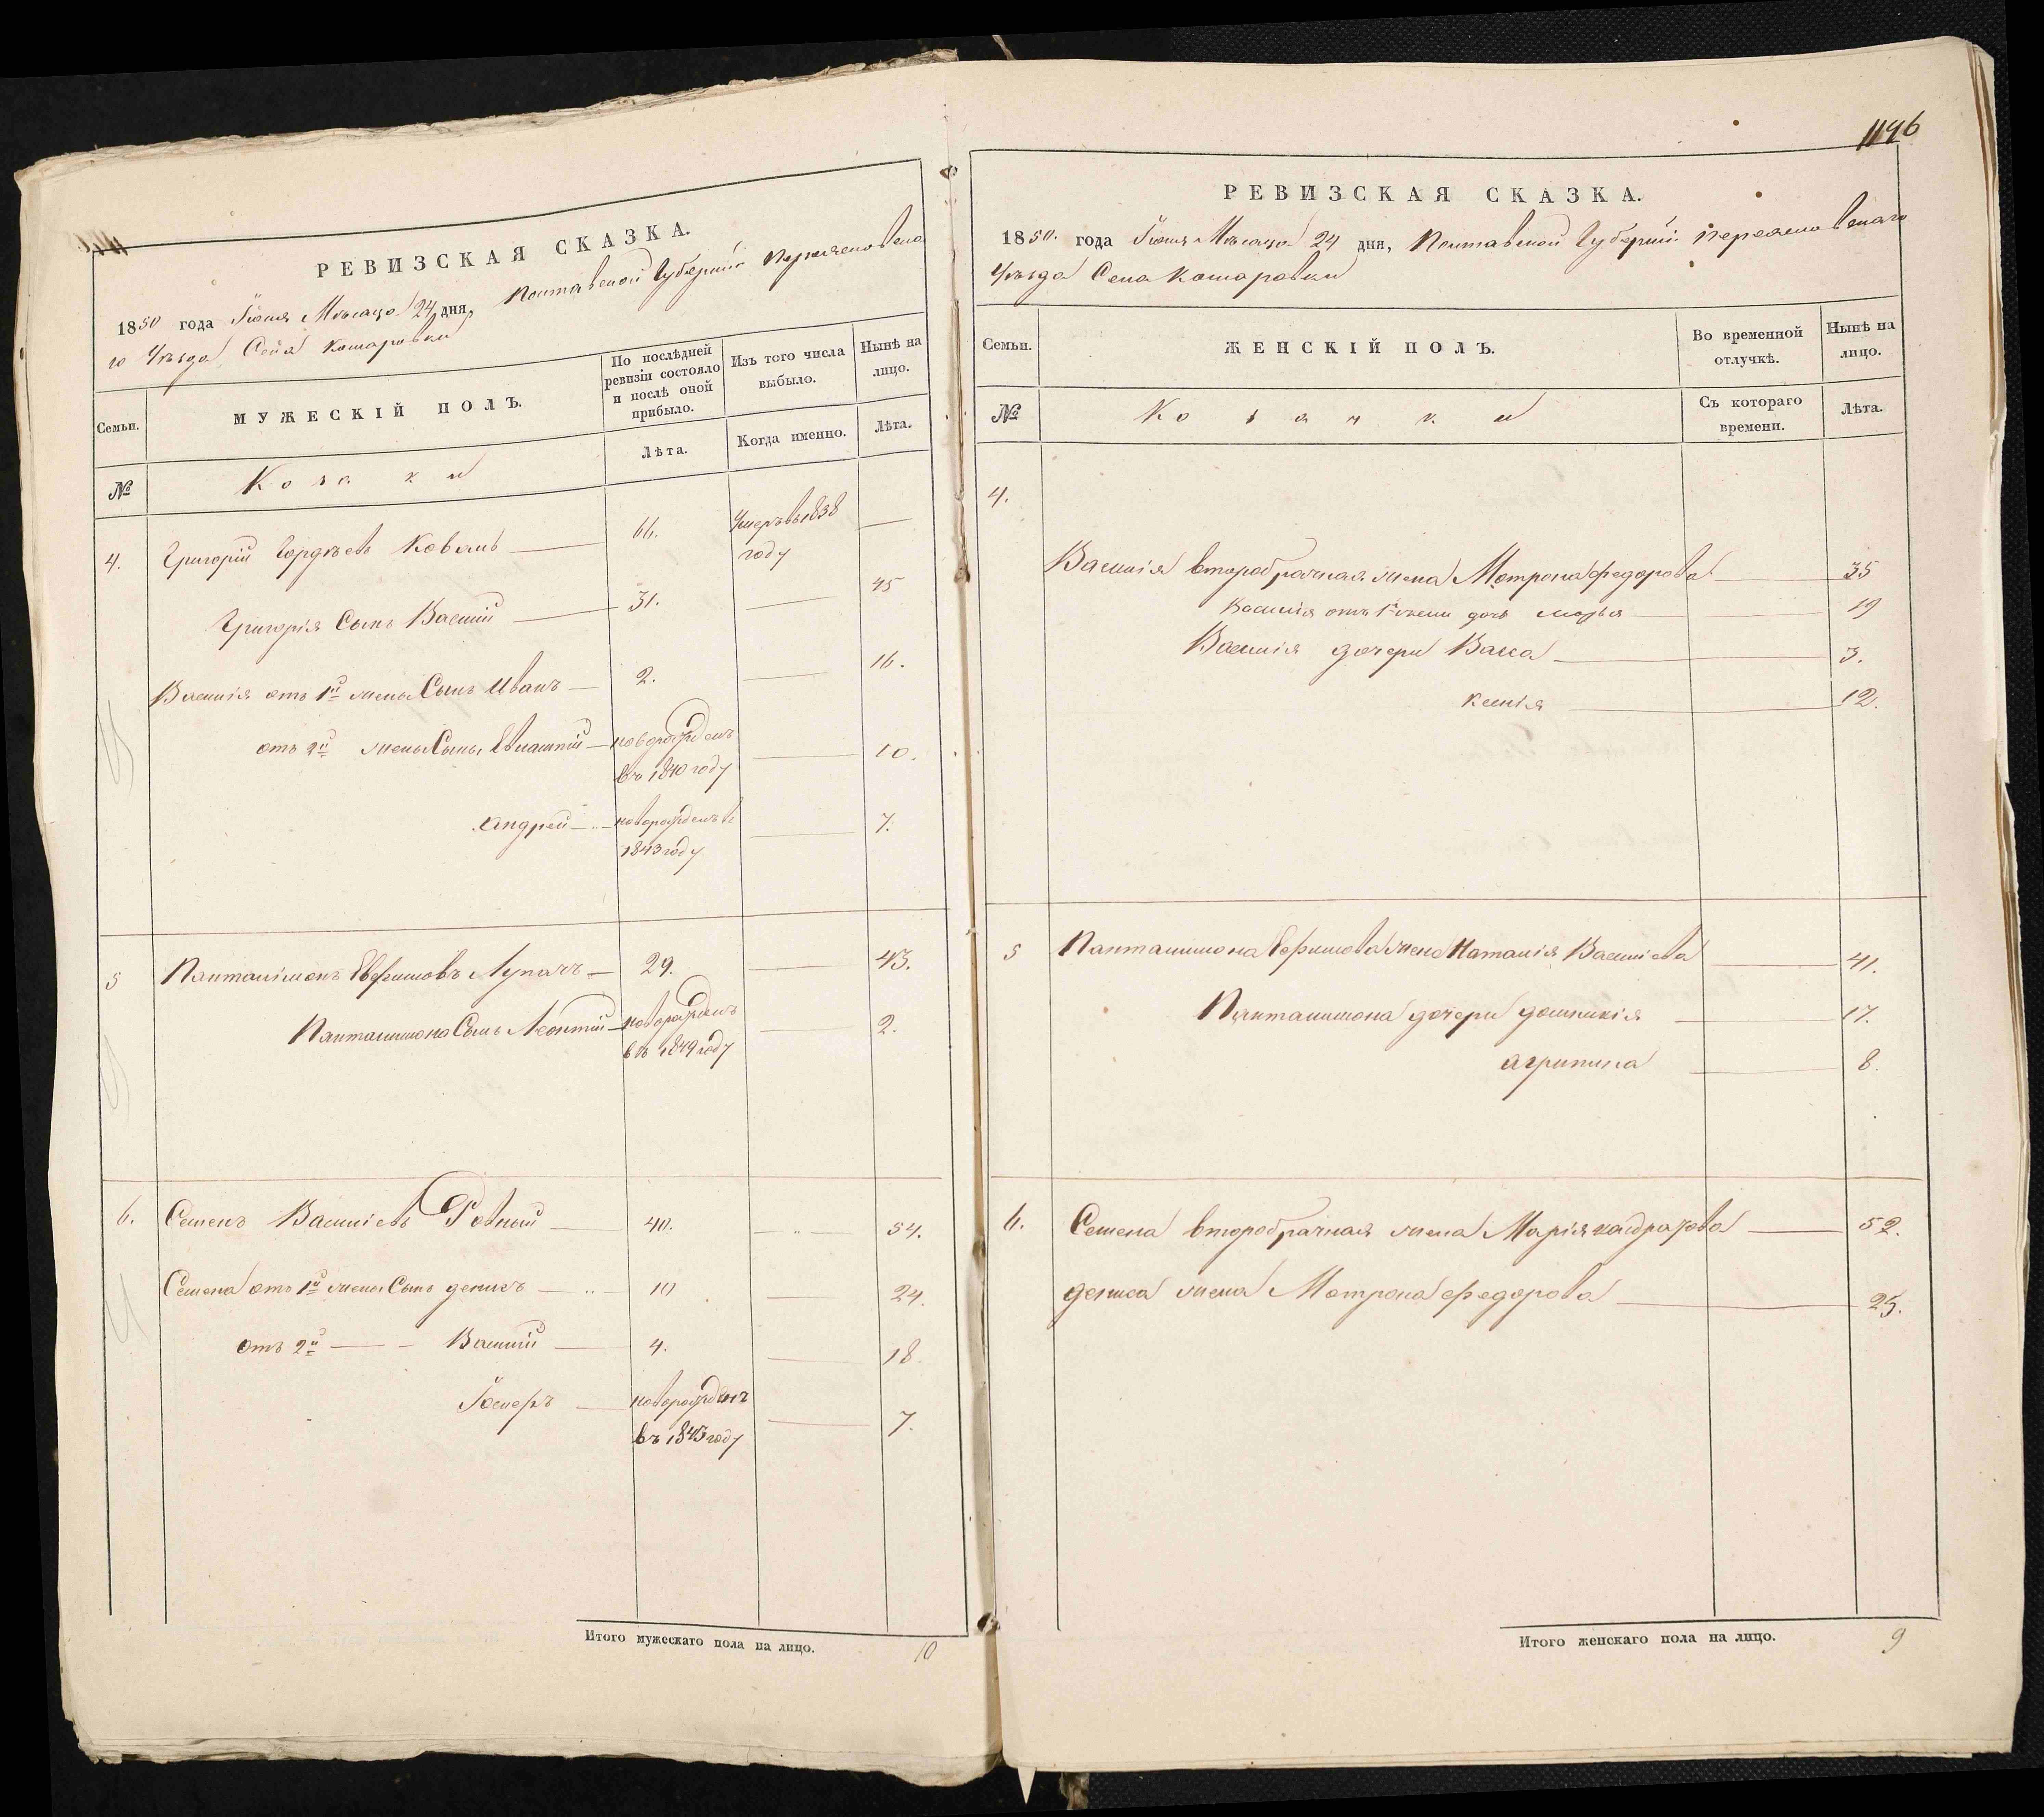 РЕВИЗСКАЯ СКАЗКА.
1850 года Іюня Мѣсяца 24 дня, Полтавской Губерніи Переяславска
го Уѣзда Села Комаровки
Семьи.
МУЖЕСКІЙ ПОЛЪ.
По послѣдней ревизіи состояло и послѣ оной прибыло.
Изъ того числа выбыло.
Нынѣ на лицо.
№
Козаки
Лѣта.
Когда именно.
Лѣта.
4. Григорій Гордѣевъ Коваль — 66. Умеръ въ 1838 году —
Григорія Сынъ Василій — 31. — 45
Василія отъ 1й жены Сынъ Иванъ — 2. — 16.
отъ 2й жены Сыны, Евлампій — новорожденъ — 10.
въ 1840 году
Андрей — новорожденъ в — 7.
1843 году
5 Панталімонъ Евфимовъ Лупачъ — 29. — 43.
Панталимона Сынъ Леонтій — новорожденъ — 2.
въ 1849 году
6. Семенъ Василіевъ Ровный — 40. — 54.
Семена отъ 1й жены Сынъ денисъ — 10 — 24.
отъ 2й — Василій — 4. — 18.
новорожденъ — 7.
въ 1843 году
Итого мужескаго пола на лицо. 10
1146
РЕВИЗСКАЯ СКАЗКА.
1850. года Іюня Мѣсяца 24 дня, Полтавской Губерніи Переяславскаго
Уѣзда Села Комаровки
Семьи.
ЖЕНСКІЙ ПОЛЪ.
Во временной отлучкѣ.
Нынѣ на лицо.
№
Козачки
Съ котораго времени.
Лѣта.
4.
Василія второбрачная жена Мотрона федорова — 35
Василія отъ 1й жены дочь — 19
Василія дочери Васса — 3.
ксенія — 12.
5 Панталимона Евфимова жена Наталія Василіева — 41.
Панталимона дочери домникія — 17.
агрипина — 8.
6. Семена второбрачная жена Марія — 52.
дениса жена Мотрона федорова — 25.
Итого женскаго пола на лицо. 9